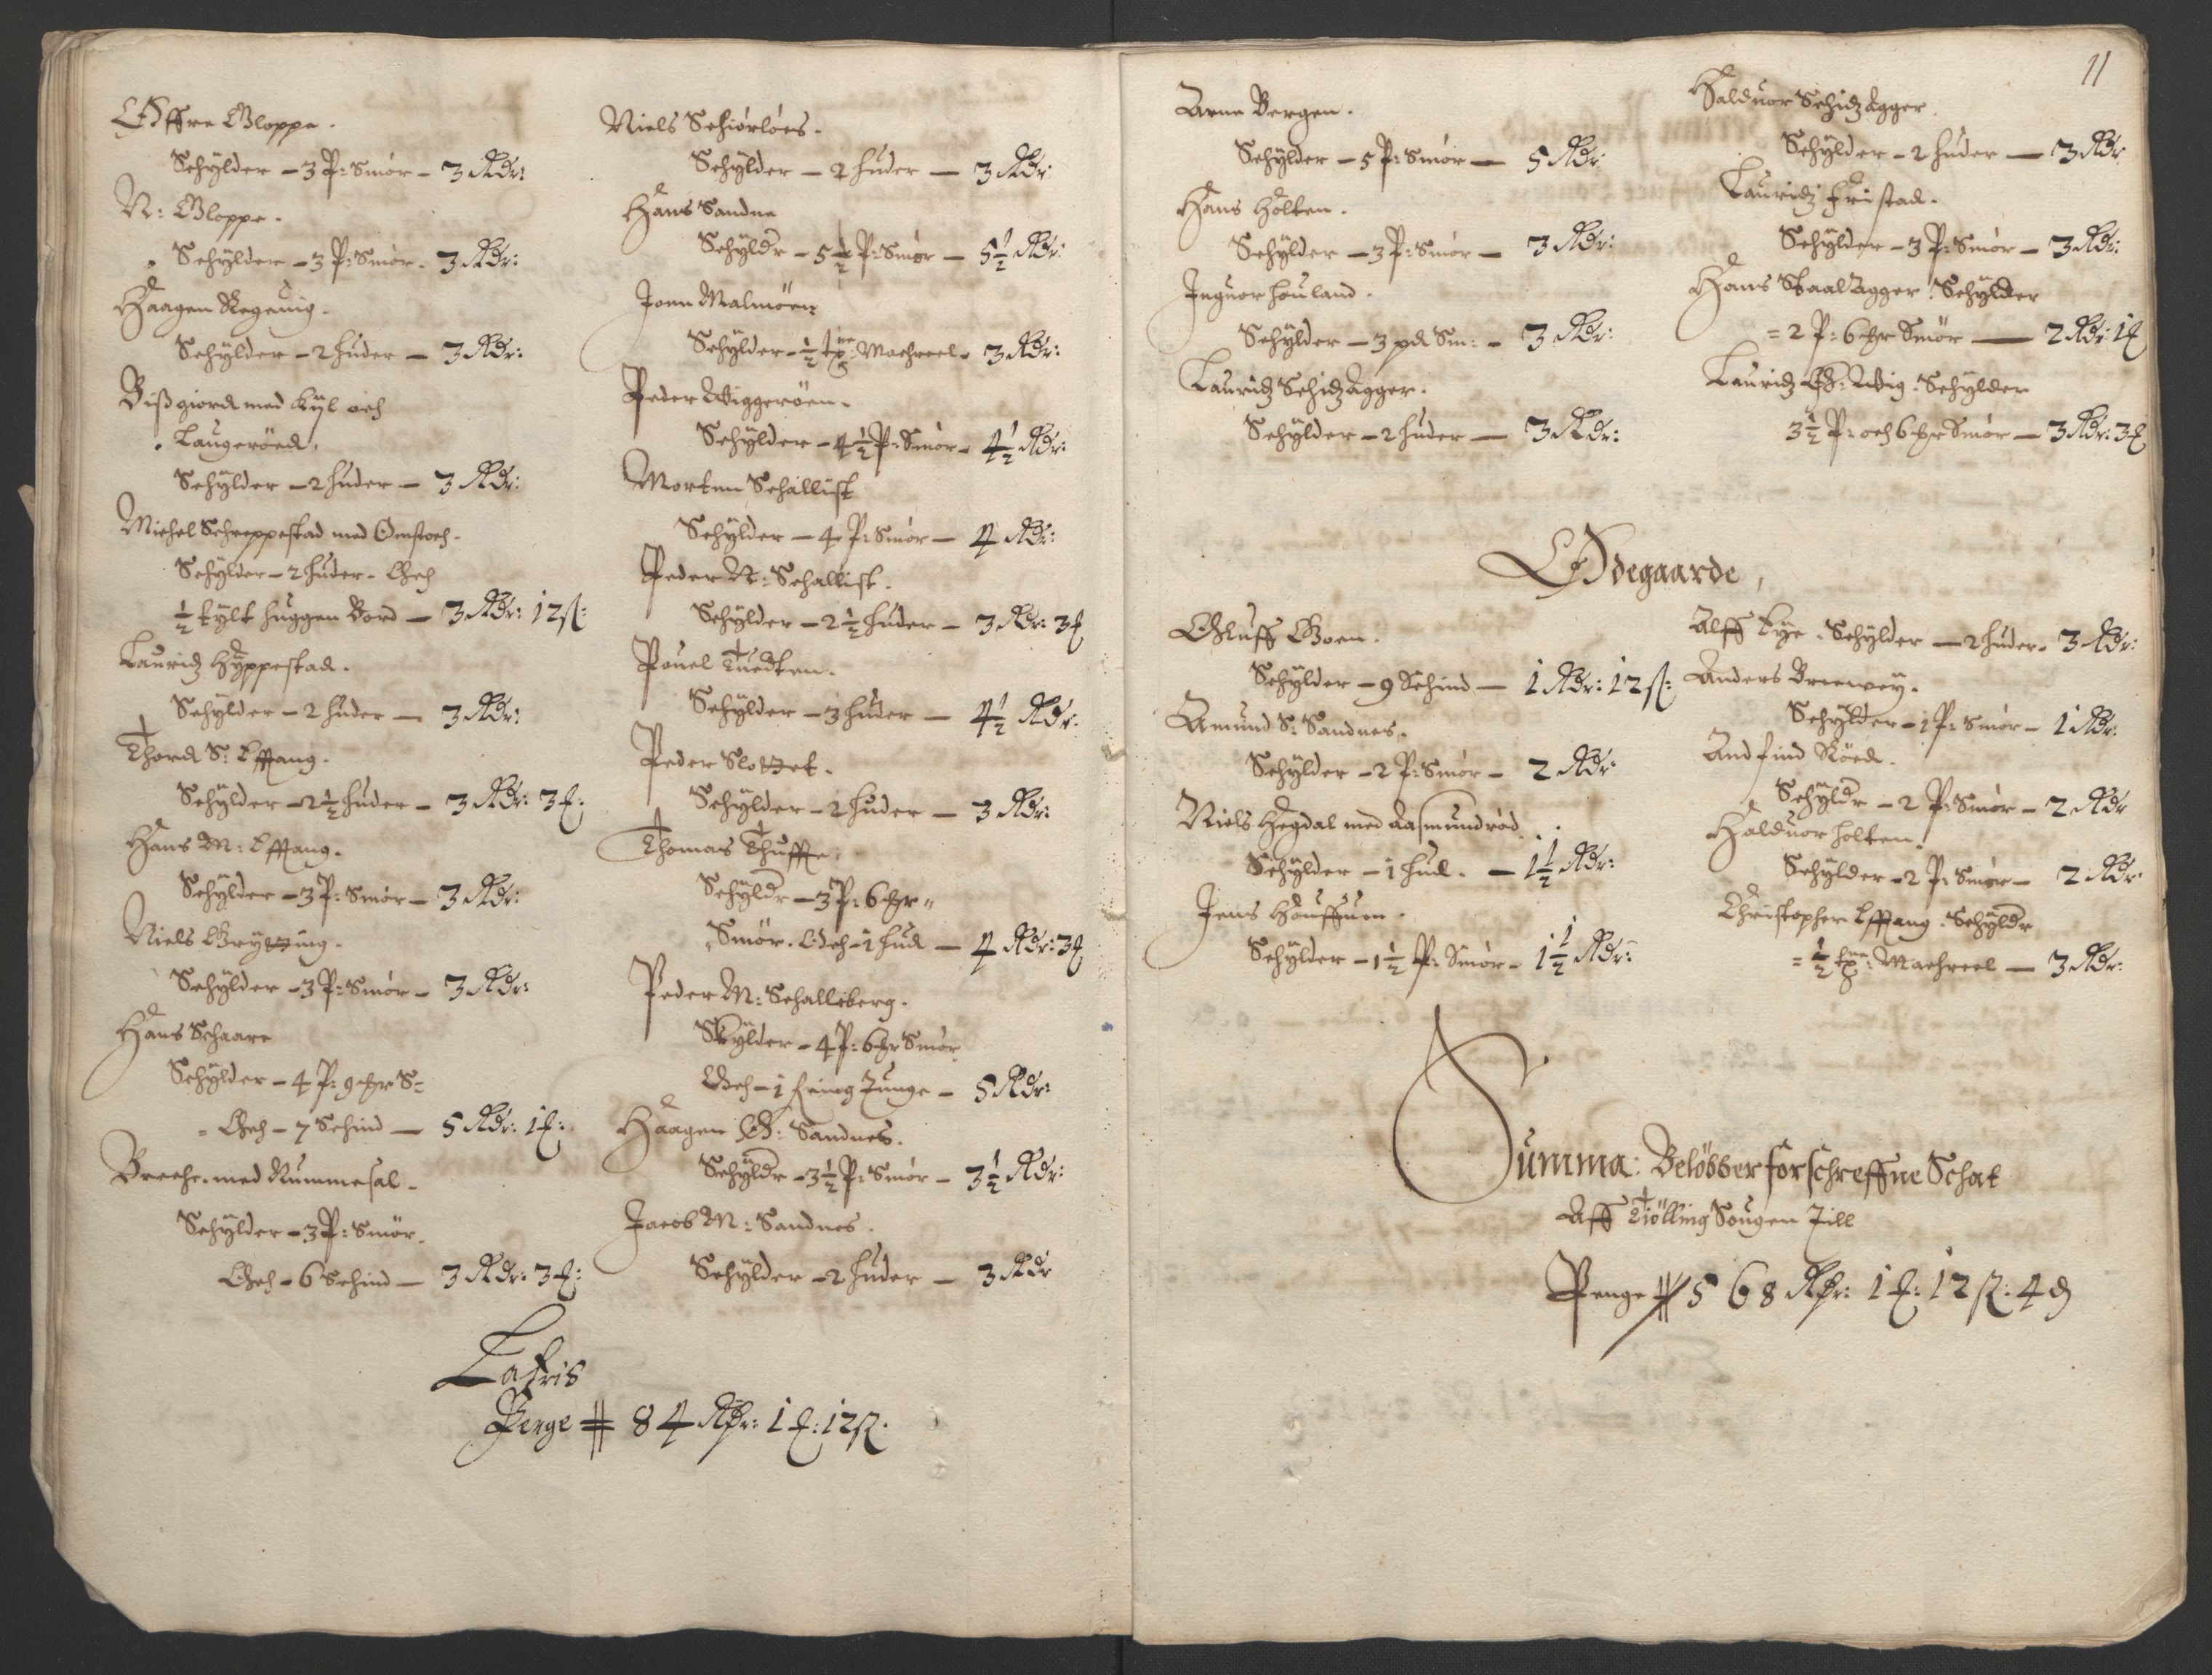 Øffre Gloppe.
Schylder – 3 P: Smør – 3 Rdr:
N: Gloppe.
Schylder – 3 P: Smør – 3 Rdr:
Haagen
Schylder – 2 huder – 3 Rdr:
Bißgiord med Kyl och
Laugerøed.
Schylder – 2 huder – 3 Rdr:
Michel Schreppestad med Omstoch.
Schylder – 2 huder – Och
½ tylt huggen Bord – 3 Rdr: 12 ß:
Lauridz Hyppestad.
Schylder – 2 huder – 3 Rdr:
Thord S: Efftang.
Schylder – 2½ huder – 3 Rdr: 3 ₰:
Hans M: Efftang.
Schylder – 3 P: Smør – 3 Rdr:
Niels Grytting.
Schylder – 3 P: Smør – 3 Rdr:
Hans Schaare
Schylder – 4 P: 9 mr S:
Och – 7 Schind – 5 Rdr: 1 ₰:
Breche med Rummesal.
Schylder – 3 P: Smør.
Och – 6 Schind – 3 Rdr: 3 ₰:
Niels Schiørløes.
Schylder – 2 huder – 3 Rdr:
Hans Sandne
Schyldr – 5½ P: Smør – 5½ Rdr:
Jonn Malmøen
Schylder – ½ tne: Machreel – 3 Rdr:
Peder Wiggerøen.
Schylder – 4½ P: Smør – 4½ Rdr:
Morten Schallist
Schylder – 4 P: Smør – 4 Rdr:
Peder N: Schallist.
Schylder – 2½ huder – 3 Rdr: 3 ₰
Pouel Tuedten.
Schylder – 3 huder – 4½ Rdr:
Peder Slottet.
Schylder – 2 huder – 3 Rdr:
Thomas Thuffte.
Schyldr – 3 P: 6 mr
Smør. Och – 1 hud – 4 Rdr: 3 ₰
Peder M: Schalleberg.
Skylder – 4 P: 6 mr Smør
Och – 1 fering Tunge – 5 Rdr:
Haagen Ø: Sandnes.
Schyldr – 3½ P: Smør – 3½ Rdr:
Jacob M: Sandnes.
Schylder – 2 huder – 3 Rdr
Latris
Penge # 84 Rdr: 1 ₰: 12 ß.
11
Arne Bergen.
Schylder – 5 P: Smør – 5 Rdr:
Hans Holten.
Schylder – 3 P: Smør – 3 Rdr:
Inguor Houland.
Schylder – 3 pd Sm: – 3 Rdr:
Lauridz Schidzagger.
Schylder – 2 huder – 3 Rdr:
Halduor Schidzagger.
Schylder – 2 huder – 3 Rdr
Lauridz Fristad.
Schylder – 3 P: Smør – 3 Rdr:
Hans Skaalagger. Schylder
= 2 P: 6 mr Smør – 2 Rdr: 1 ₰
Lauridz Ø: Wiig. Schylder
3½ P: och 6 mr Smør – 3 Rdr: 3 ₰
Ødegaarde,
Oluff Goen.
Schylder – 9 Schind – 1 Rdr: 12 ß:
Amund S: Sandnes.
Schylder – 2 P: Smør – 2 Rdr
Niels Hegdal med Aasmundrød.
Schylder – 1 hud. – 1½ Rdr:
Jens Houffuen.
Schylder – 1½ P: Smør – 1½ Rdr:
Alff Lye. Schylder – 2 huder – 3 Rdr:
Anders Breewey.
Schylder – 1 P: Smør – 1 Rdr:
Andfind Røed.
Schyldr – 2 P: Smør – 2 Rdr
Halduor Holten.
Schylder – 2 P: Smør – 2 Rdr:
Christopher Efftang. Schyldr
= ½ tne: Machreel – 3 Rdr:
Summa: Beløbber forschreffne Schat
Aff Tiølling Sougen Till
Penge # 568 Rdr: 1 ₰: 12 ß: 4 d